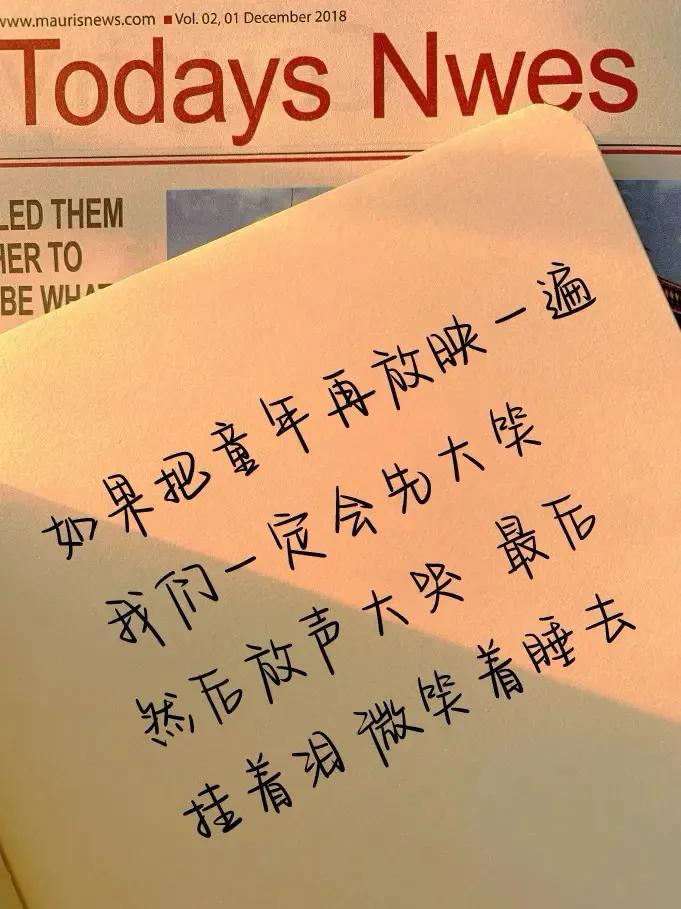 www.maurisnews.com ■Vol. 02, 01 December 2018
Todays Nwes
LED THEM
HER TO
BE WHAT
如果把童年再放映一遍
我们一定会先大笑
然后放声大哭 最后
挂着泪微笑着睡去